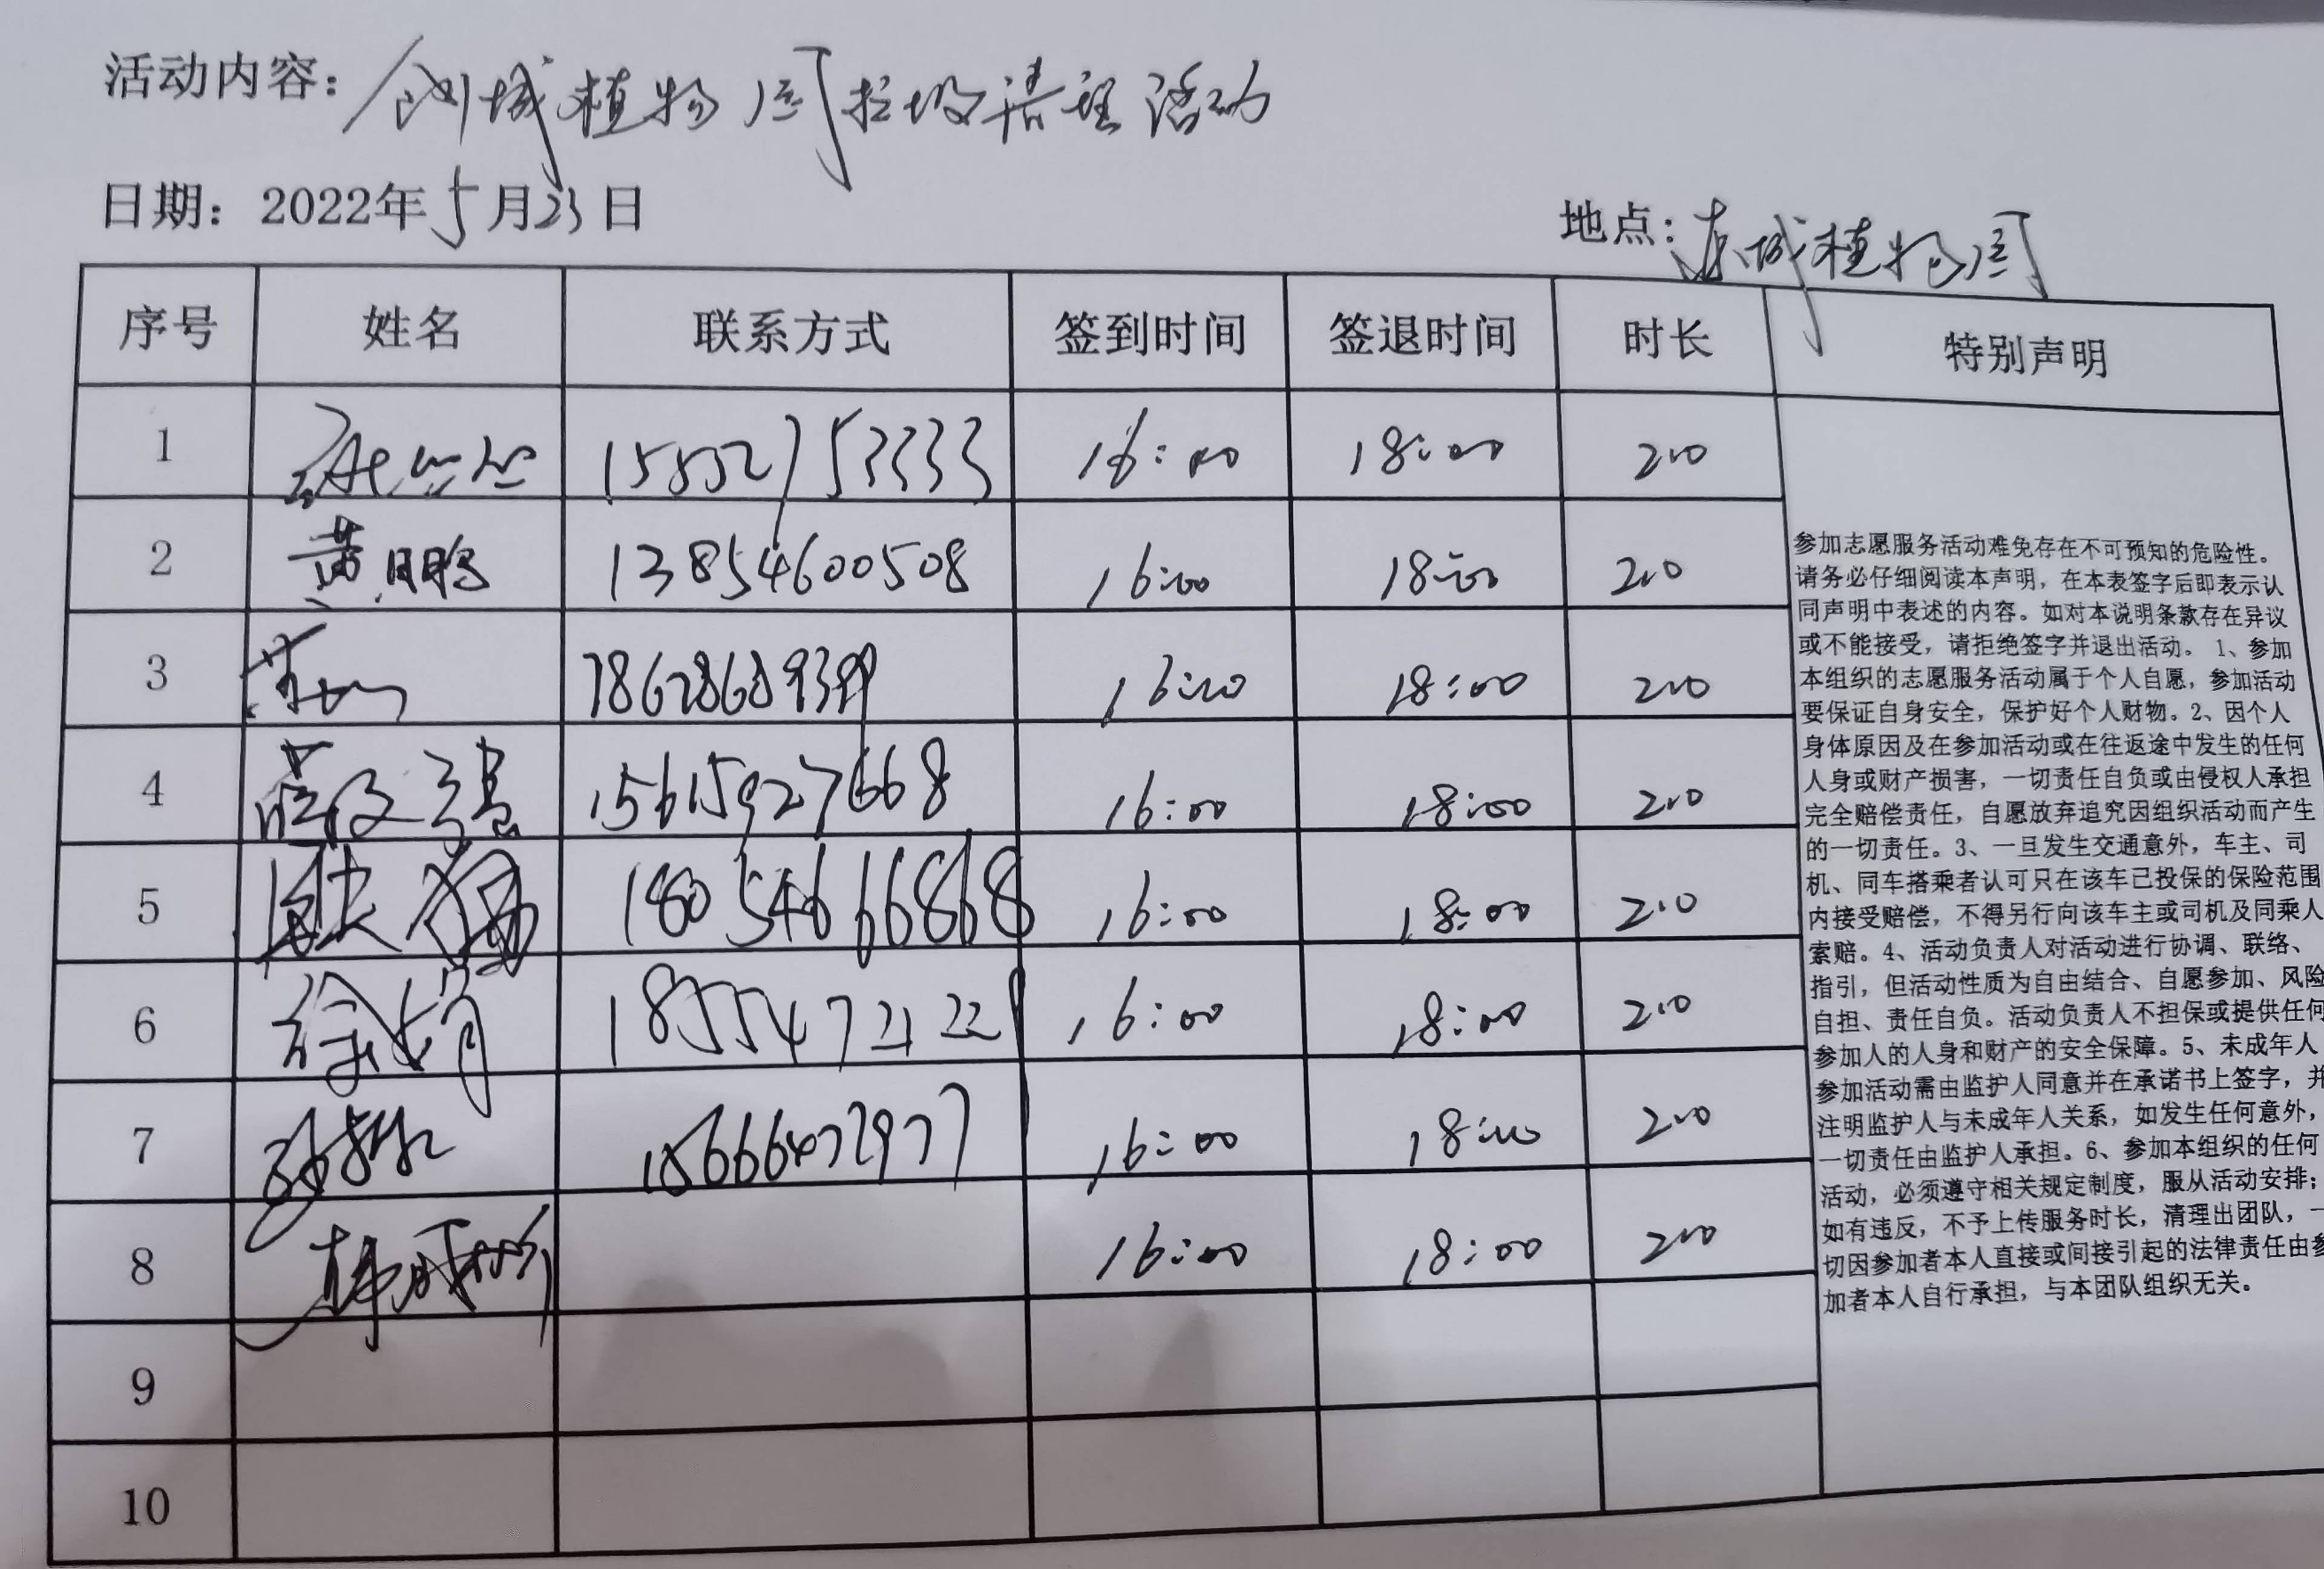 活动内容：创城植物园垃圾清理活动
日期：2022年5月23日
地点：东城植物园
序号 姓名 联系方式 签到时间 签退时间 时长 特别声明
1 15552753333 16:00 18:00 2.0
2 黄鹏 13854600508 16:00 18:00 2.0
3 18678689399 16:00 18:00 2.0
4 15615927668 16:00 18:00 2.0
5 18054666868 16:00 18:00 2.0
6 徐娟 16:00 18:00 2.0
7 15666472977 16:00 18:00 2.0
8 16:00 18:00 2.0
9
10
参加志愿服务活动难免存在不可预知的危险性。
请务必仔细阅读本声明，在本表签字后即表示认
同声明中表述的内容。如对本说明条款存在异议
或不能接受，请拒绝签字并退出活动。1、参加
本组织的志愿服务活动属于个人自愿，参加活动
要保证自身安全，保护好个人财物。2、因个人
身体原因及在参加活动或在往返途中发生的任何
人身或财产损害，一切责任自负或由侵权人承担
完全赔偿责任，自愿放弃追究因组织活动而产生
的一切责任。3、一旦发生交通意外，车主、司
机、同车搭乘者认可只在该车已投保的保险范围
内接受赔偿，不得另行向该车主或司机及同乘人
索赔。4、活动负责人对活动进行协调、联络、
指引，但活动性质为自由结合、自愿参加、风险
自担、责任自负。活动负责人不担保或提供任何
参加人的人身和财产的安全保障。5、未成年人
参加活动需由监护人同意并在承诺书上签字，并
注明监护人与未成年人关系，如发生任何意外，
一切责任由监护人承担。6、参加本组织的任何
活动，必须遵守相关规定制度，服从活动安排；
如有违反，不予上传服务时长，清理出团队，一
切因参加者本人直接或间接引起的法律责任由参
加者本人自行承担，与本团队组织无关。